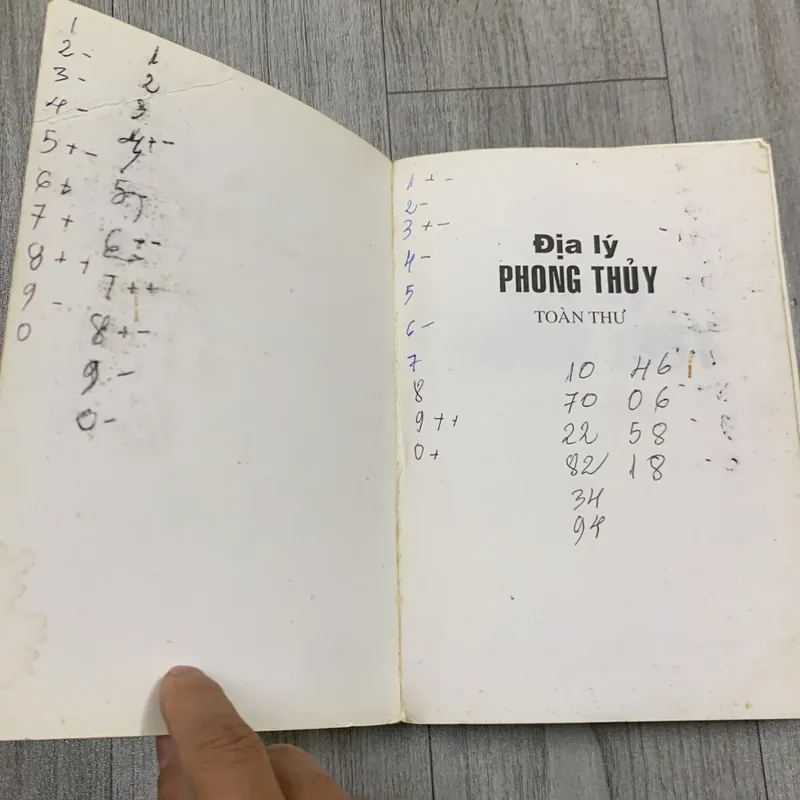 1
2 -
3 -
4 -
5 + -
6 +
7 +
8 + +
9 -
0
1
2
3
4 + -
5 -
6 + -
7 + +
8 + -
9 -
0 -
1 + -
2 -
3 + -
4 -
5
6 -
7
8
9 + +
0 +
Địa lý
PHONG THỦY
TOÀN THƯ
10 46
70 06
22 58
82 18
34
94